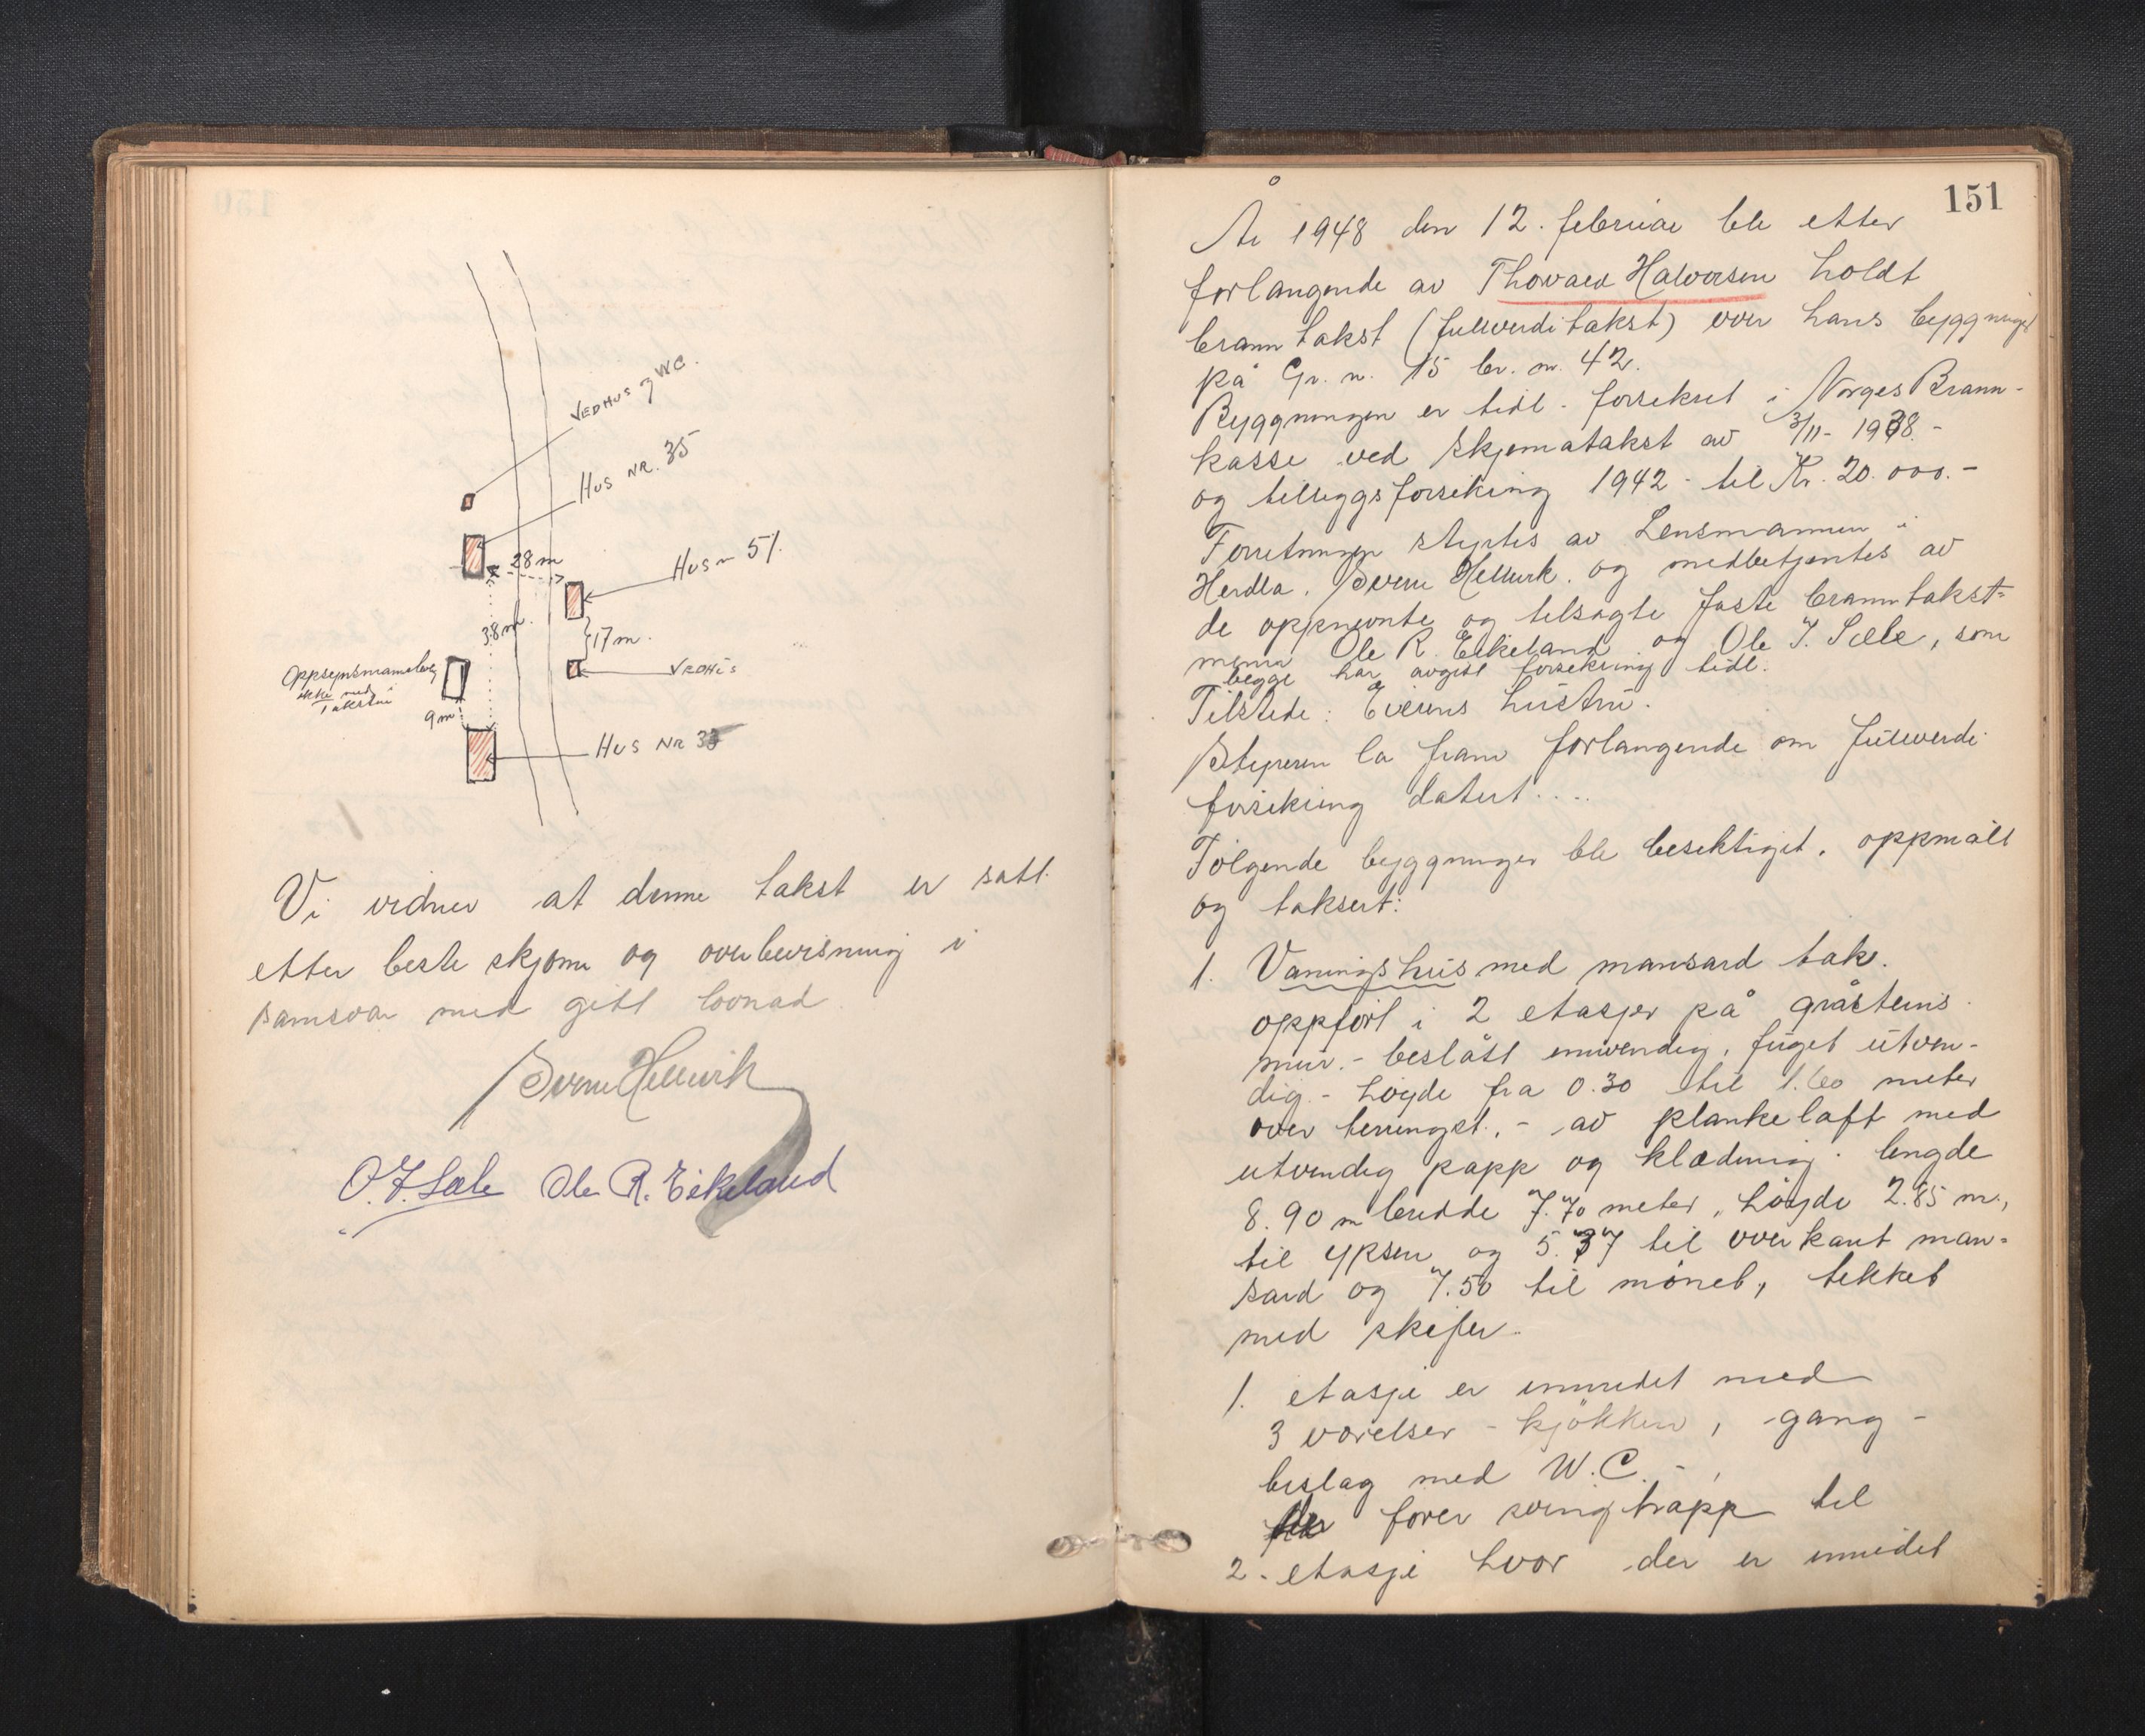 VEDHUS og WC.
HUS NR. 35
28 m
HUS nr 51.
38 m.
17 m.
VEDHUS
Oppsynsmannsbolig
ikke med
i aksten
9 m
HUS NR 33
Vi vidner at denne takst er satt
etter beste skjønn og overbevisning i
samsvar med gitt lovnad.
Sverre Hellevik
O. J. Sæle Ole R. Eikeland
151
År 1948 den 12. februar ble etter
forlangende av Thorvald Halvorsen holdt
branntakst (fullverditakst) over hans byggninger
på Gr. n. 15 br. nr. 42.
Byggningen er tidl. forsikret i Norges Brann-
kasse ved skjematakst av 3/11- 1938.-
og tilleggsforsikring 1942 - til Kr. 20.000.-
Forretningen styrtes av Lensmannen i
Herdla, Sverre Hellevik. og medbetjentes av
de oppnevnte og tilsagte faste branntakst-
menn Ole R. Eikeland og Ole J. Sæle, som
begge har avgitt forsikring tidl.
Tilstede: Eierens hustru.
Styreren la fram forlangende om fullverdi
forsikring datert....
Følgende byggninger ble besiktiget, oppmålt
og taksert:
1. Vaningshus med mansard tak.
oppført i 2 etasjer på gråsteins
mur.- beslått innvendig, fuget utven-
dig.- høyde fra 0.30 til 1.60 meter
over terrenget.- av plankelaft med
utvendig papp og klædning. lengde
8.90 m bredde 7.70 meter, høyde 2.85 m.,
til gipsen og 5.37 til overkant man-
sard og 7.50 til mønet, tekket
med skifer.
1. etasje er innredet med
3 værelser - kjøkken, gang -
bislag med W.C. -,
fører svingtrapp til
2. etasje hvor der er innredet